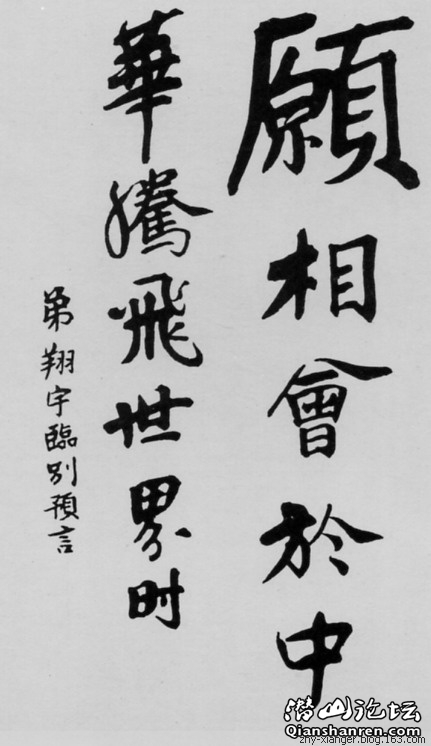 願相會於中
華騰飛世界时
弟翔宇臨别預言
潜山论坛
Qianshanren.com
zhy-xianger.blog.163.com